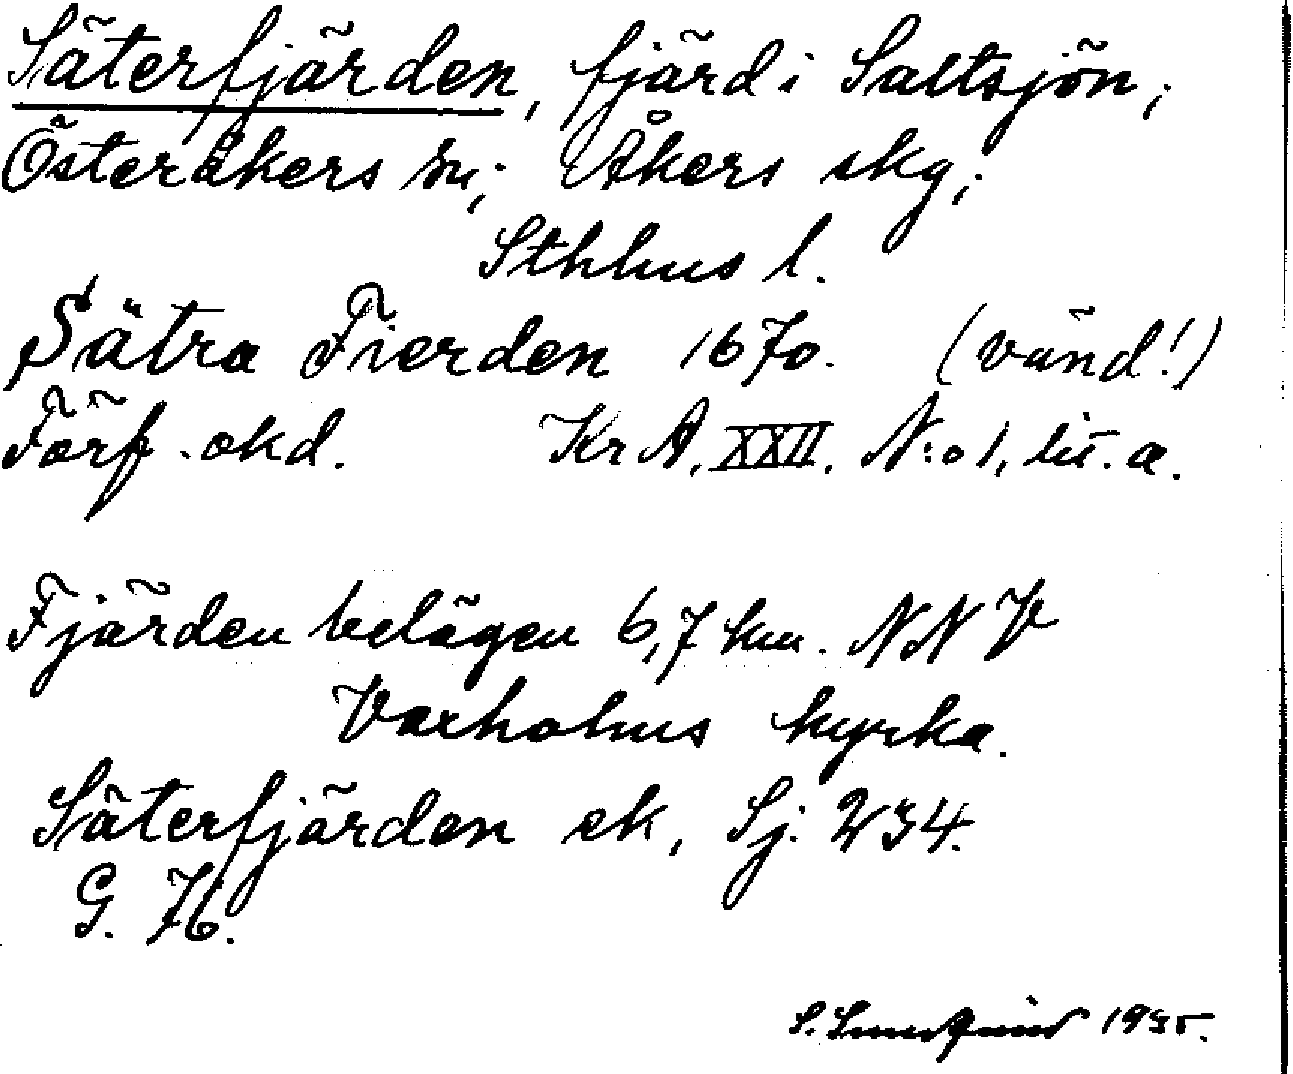 Säterfjärden, fjärd i Saltsjön,
Österåkers sn; Åkers skg;
Sthlms l.
Sätra Fierden 1670. (vänd!)
Förf. okd. KrA, XXII. N:o 1, lit. a.
Fjärden belägen 6,7 km. NNV
Vaxholms kyrka.
Säterfjärden ek, Sj. 234.
G. H.
S. 1935.